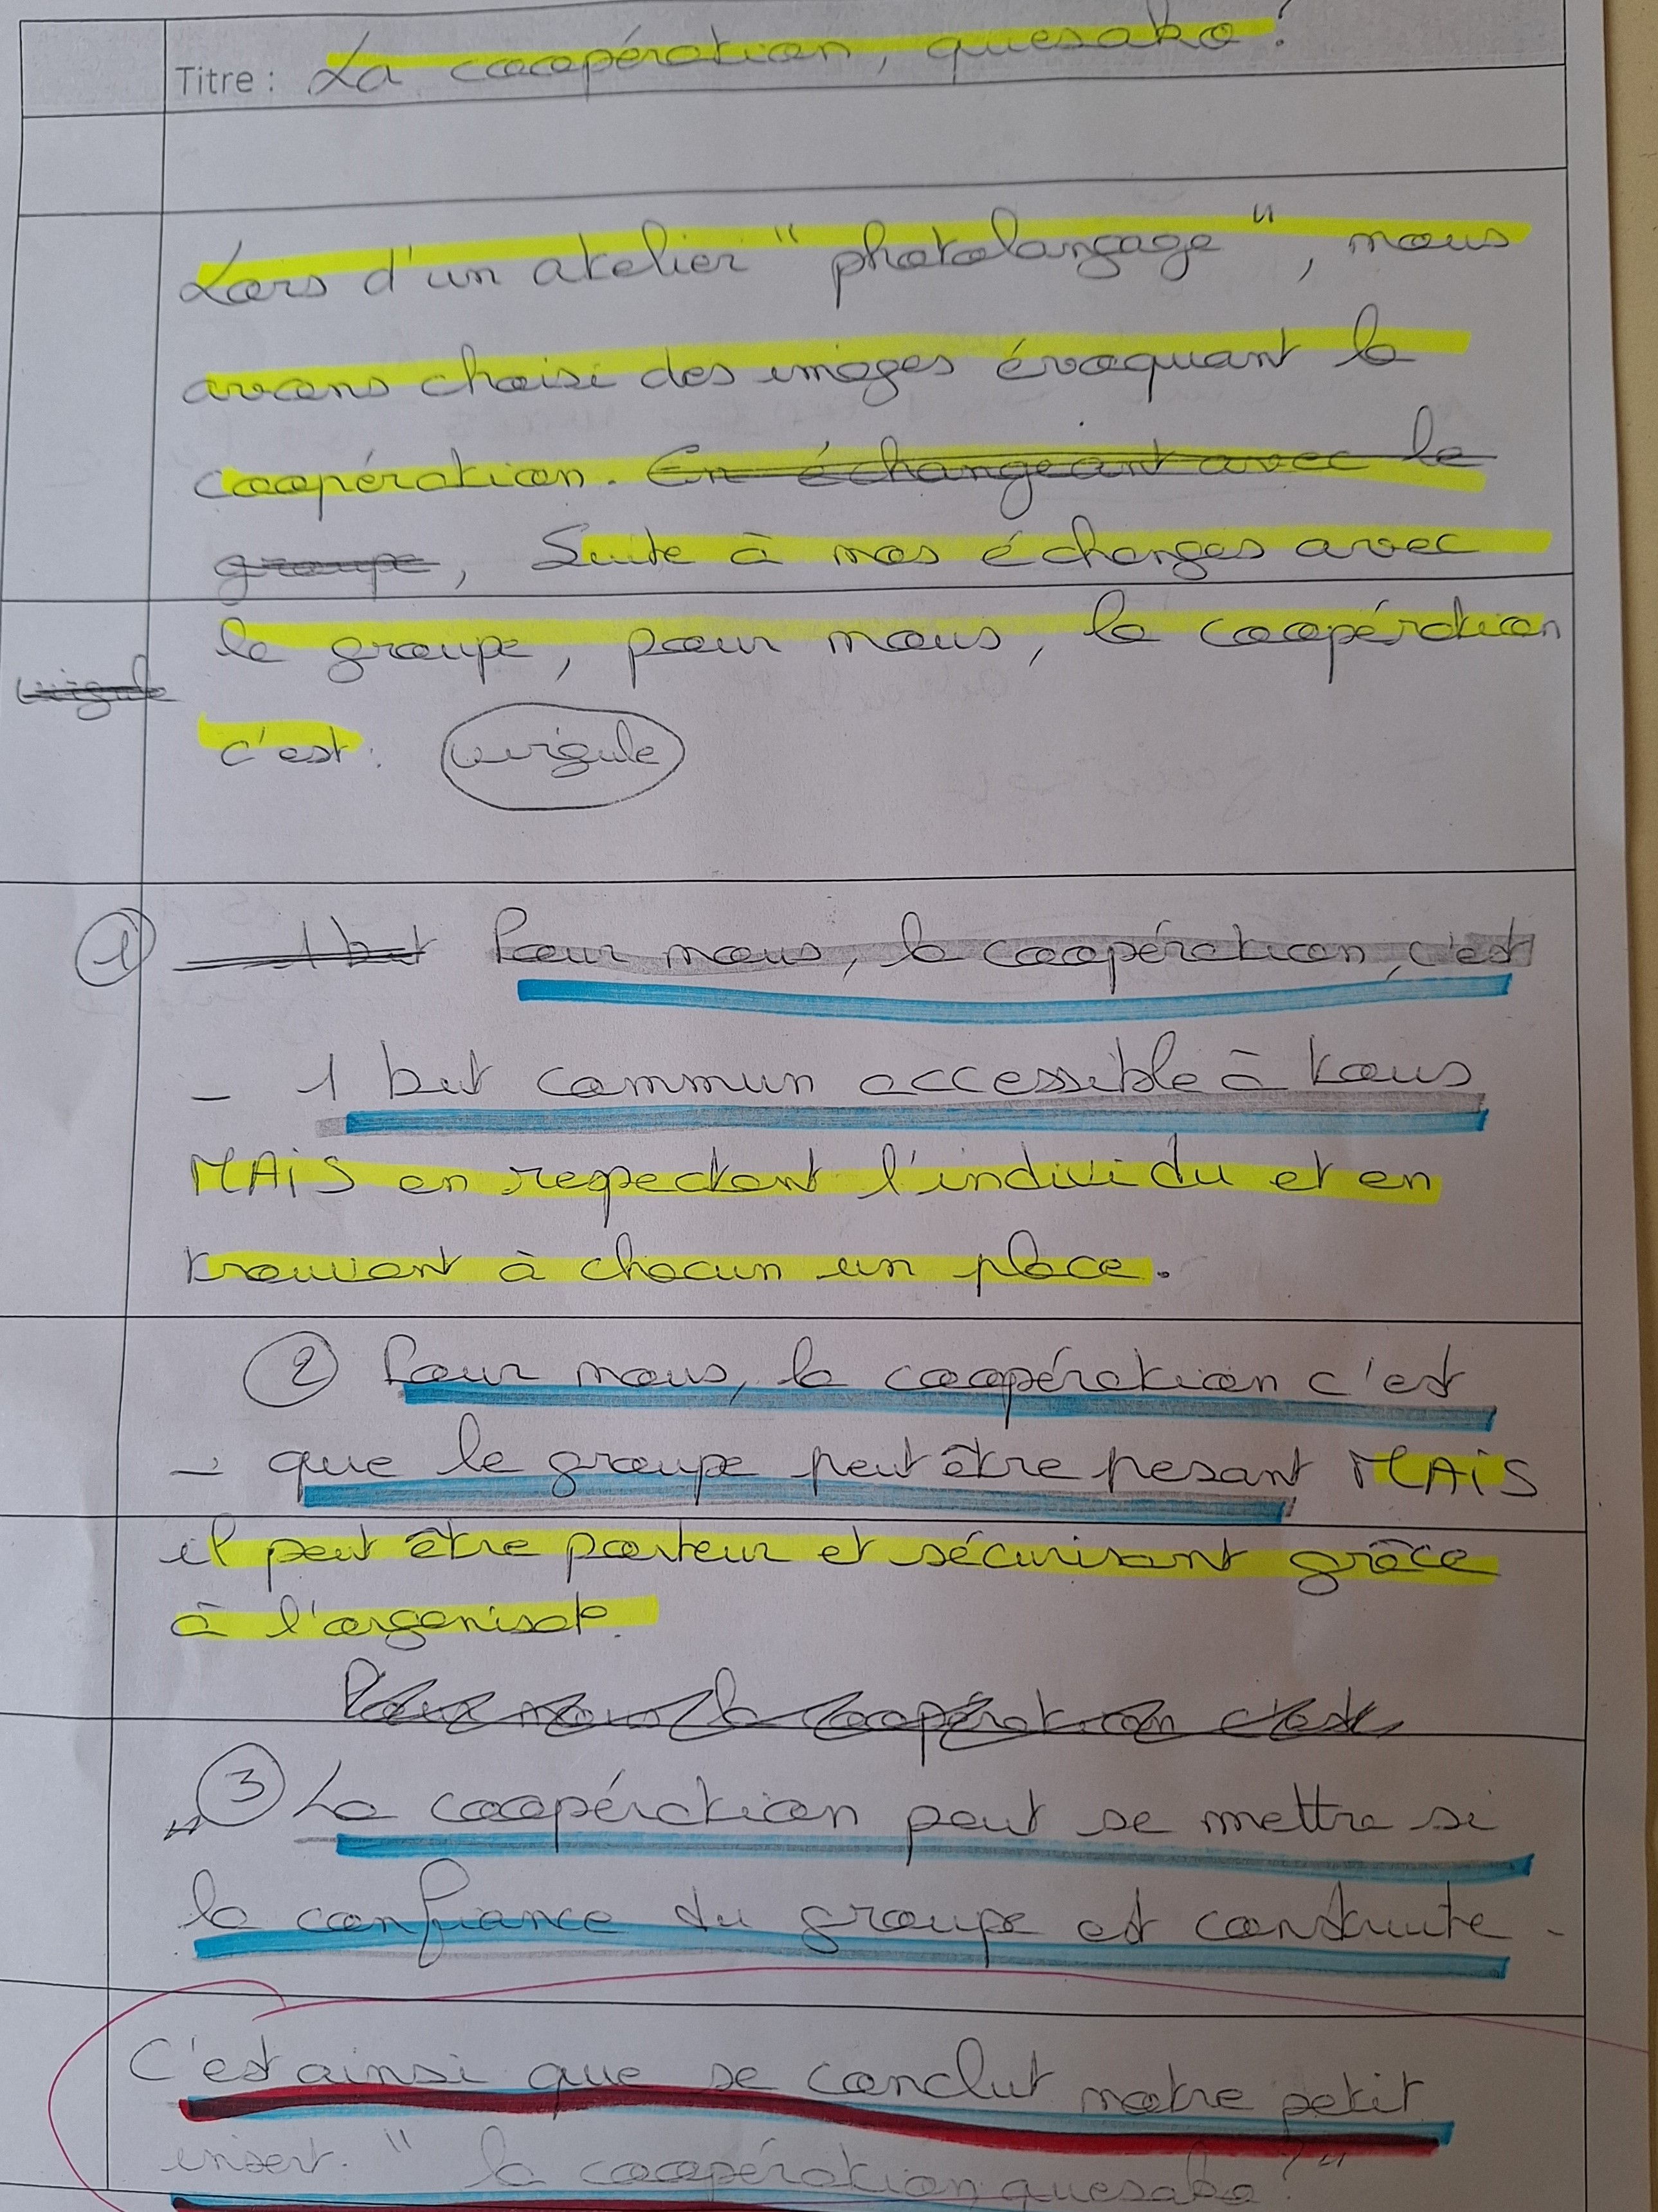 Titre : La coopération, quesako?
Lors d'un atelier "photolangage", nous
avons choisi des images évoquant la
coopération. En échangeant avec le
groupe, Suite à nos échanges avec
le groupe, pour nous, la coopération
virgule
c'est : virgule
① 1 but Pour nous, la coopération, c'est
- 1 but commun accessible à tous
MAiS en respectant l'individu et en
trouvant à chacun un place.
② Pour nous, la coopération c'est
- que le groupe peut être pesant MAiS
il peut être porteur et sécurisant grâce
à l'organisat°.
Pour nous la coopération c'est
③ La coopération peut se mettre si
la confiance du groupe est construite.
C'est ainsi que se conclut notre petit
insert. "la coopération quesako?"